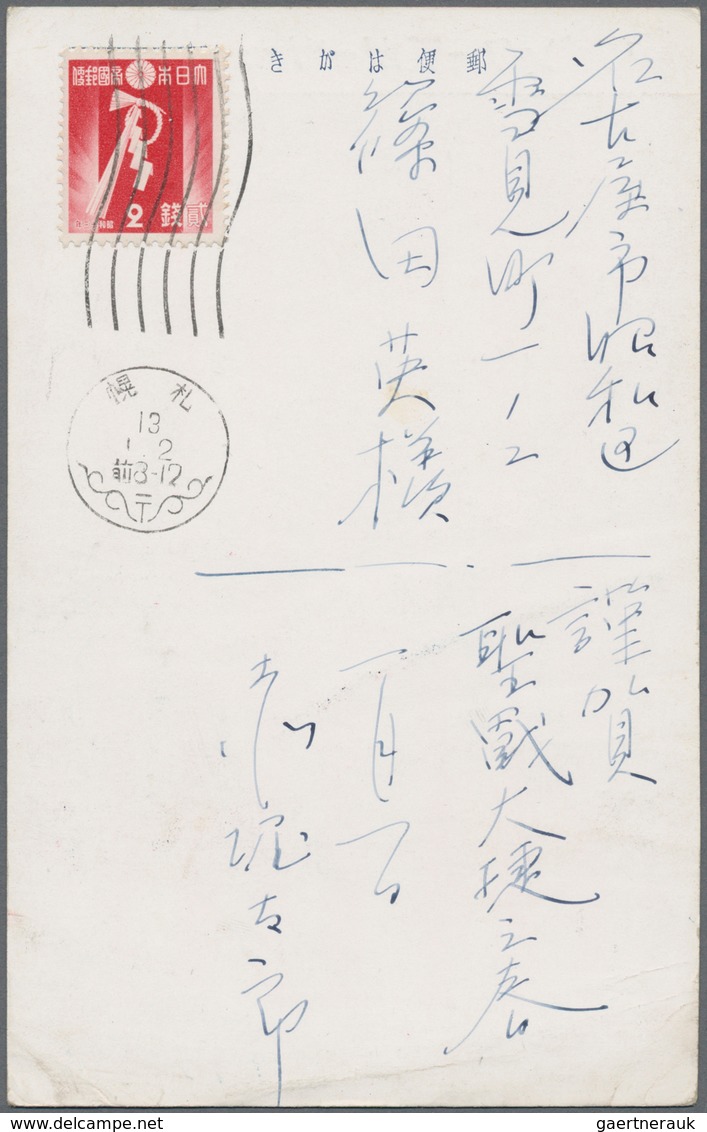 郵便はがき
大日本帝國郵便
貳銭
2
札幌
13
1.2
前8-12
名古屋市昭和区
雪見町一ノ二
篠田英横様
謹賀
聖戦大捷之春
一月一日
赤堀古郎
gaertnerauk